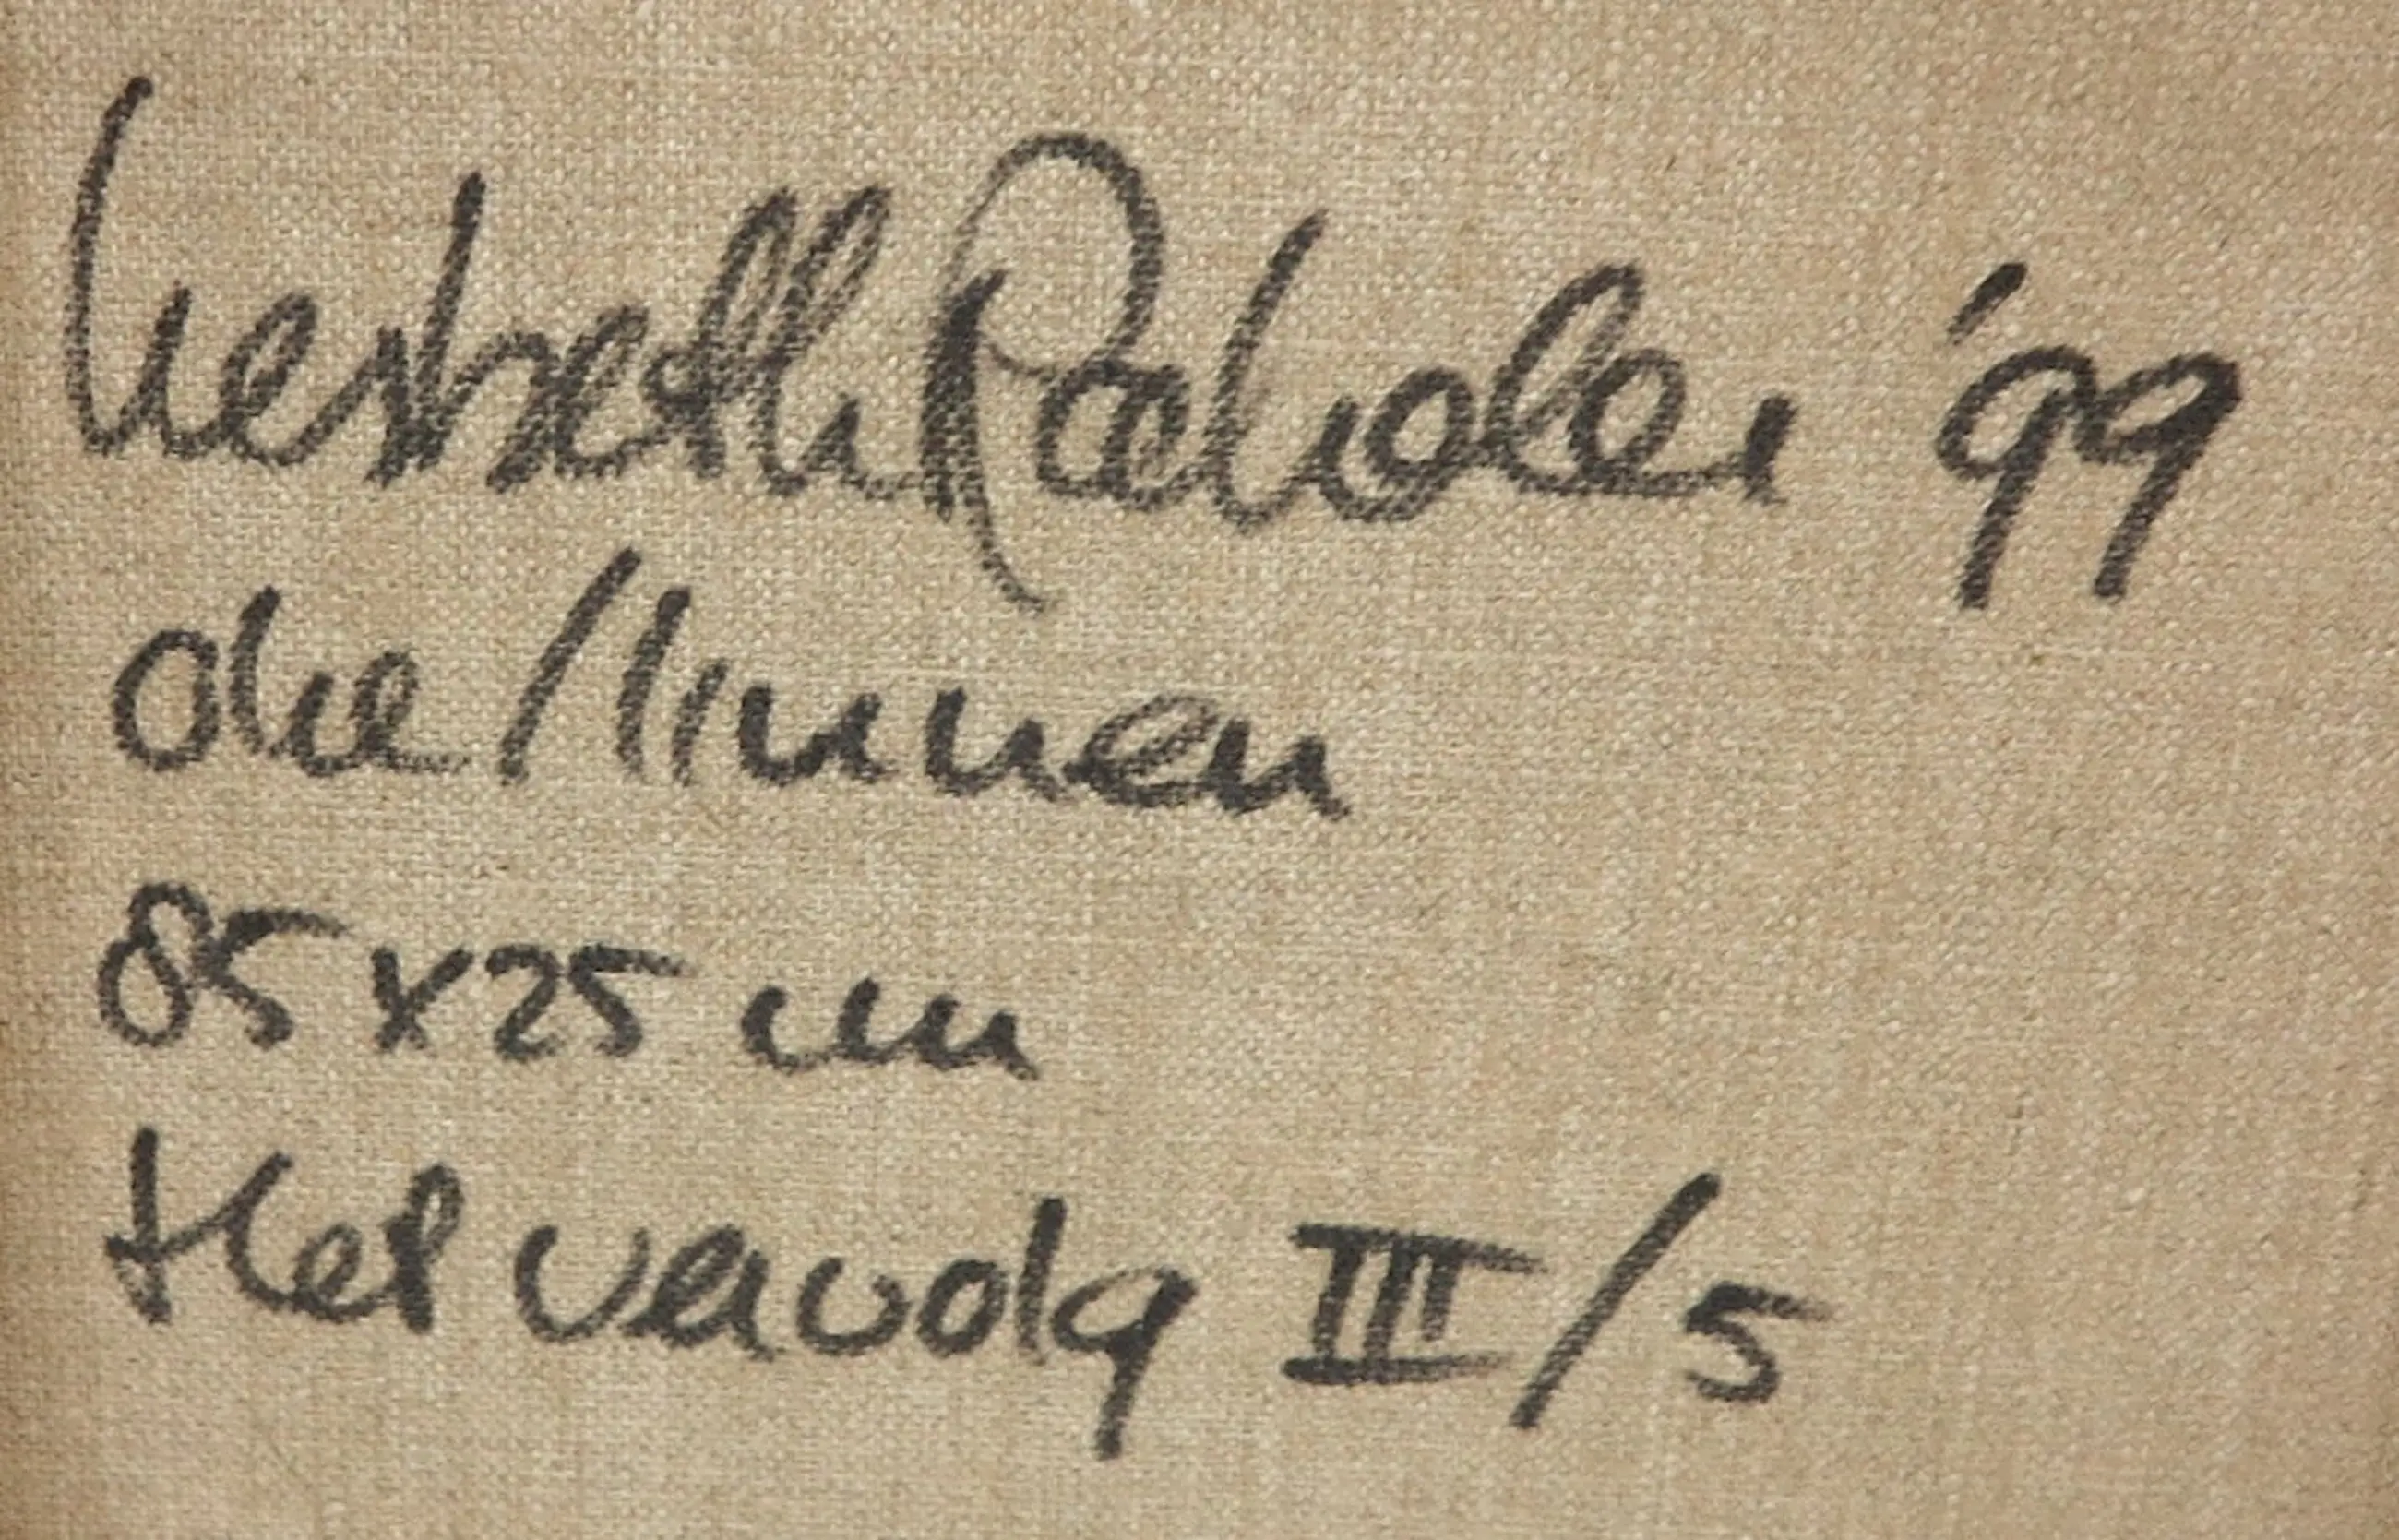 Liesbeth '99
olie/linnen
85 x 25 cm
Het vervolg III/5